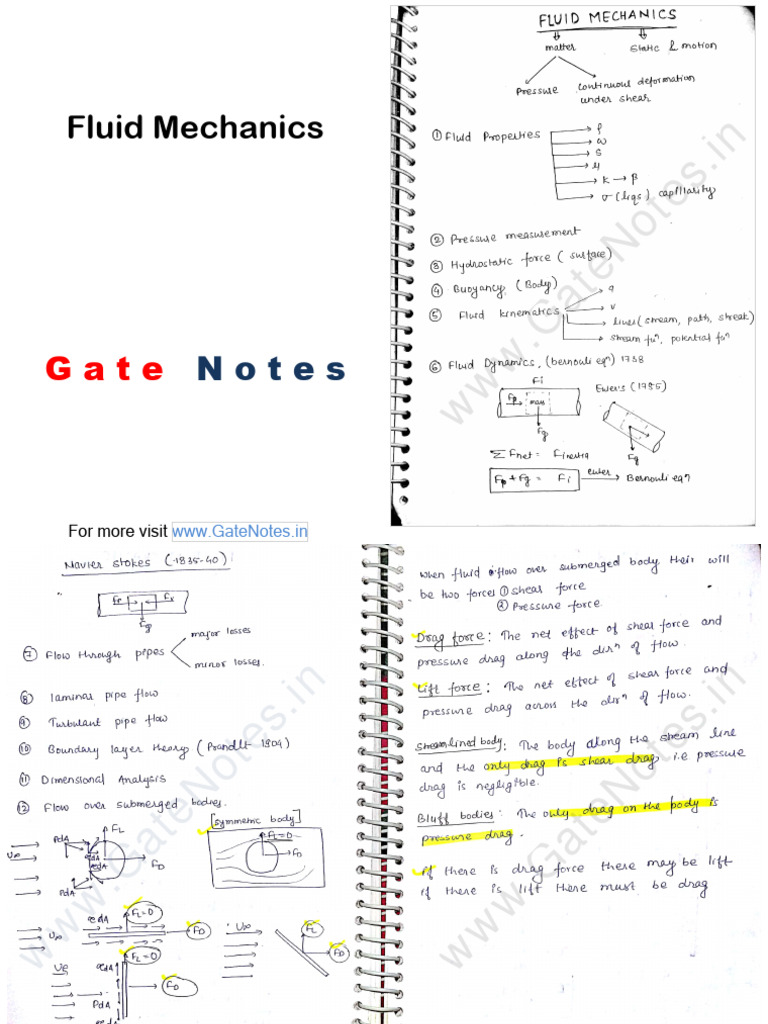 Fluid Mechanics
Gate Notes
For more visit www.GateNotes.in
FLUID MECHANICS
matter
static & motion
Pressure
continuous deformation
under shear
① Fluid Properties
ρ
ω
S
μ
K → β
σ (liqs) capillarity
② Pressure measurement
③ Hydrostatic force ( surface)
④ Buoyancy (Body)
⑤ Fluid kinematics
a
v
lines (stream, path, streak)
stream fuⁿ, potential fuⁿ
⑥ Fluid Dynamics, (bernouli eqⁿ) 1738
Fi
Fp
mass
Fg
Euler's (1785)
Fg
Σ Fnet = Finertia
Fp + Fg = Fi
euler
Bernouli eqⁿ
www.GateNotes.in
Navier stokes (1835-40)
Fp
Fv
Fg
⑦ Flow through pipes
major losses
minor losses.
⑧ laminar pipe flow
⑨ Turbulant pipe flow
⑩ Boundary layer theory (Prandlt 1904)
⑪ Dimensional Analysis
⑫ Flow over submerged bodies.
U∞
PdA
FL
FD
PdA
[symmetric body]
FL=0
FD
U∞
FL=0
FD
U∞
FL
FD
U∞
FL=0
PdA
FD
www.GateNotes.in
When fluid flow over submerged body, their will
be two forces ① shear force
② Pressure force
Drag force: The net effect of shear force and
pressure drag along the dirⁿ of flow.
Lift force: The net effect of shear force and
pressure drag across the dirⁿ of flow.
Streamlined body: The body along the stream line
and the only drag is shear drag i.e pressure
drag is negligible.
Bluff bodies: The only drag on the body is
pressure drag.
If there is drag force there may be lift
if there is lift there must be drag
www.GateNotes.in